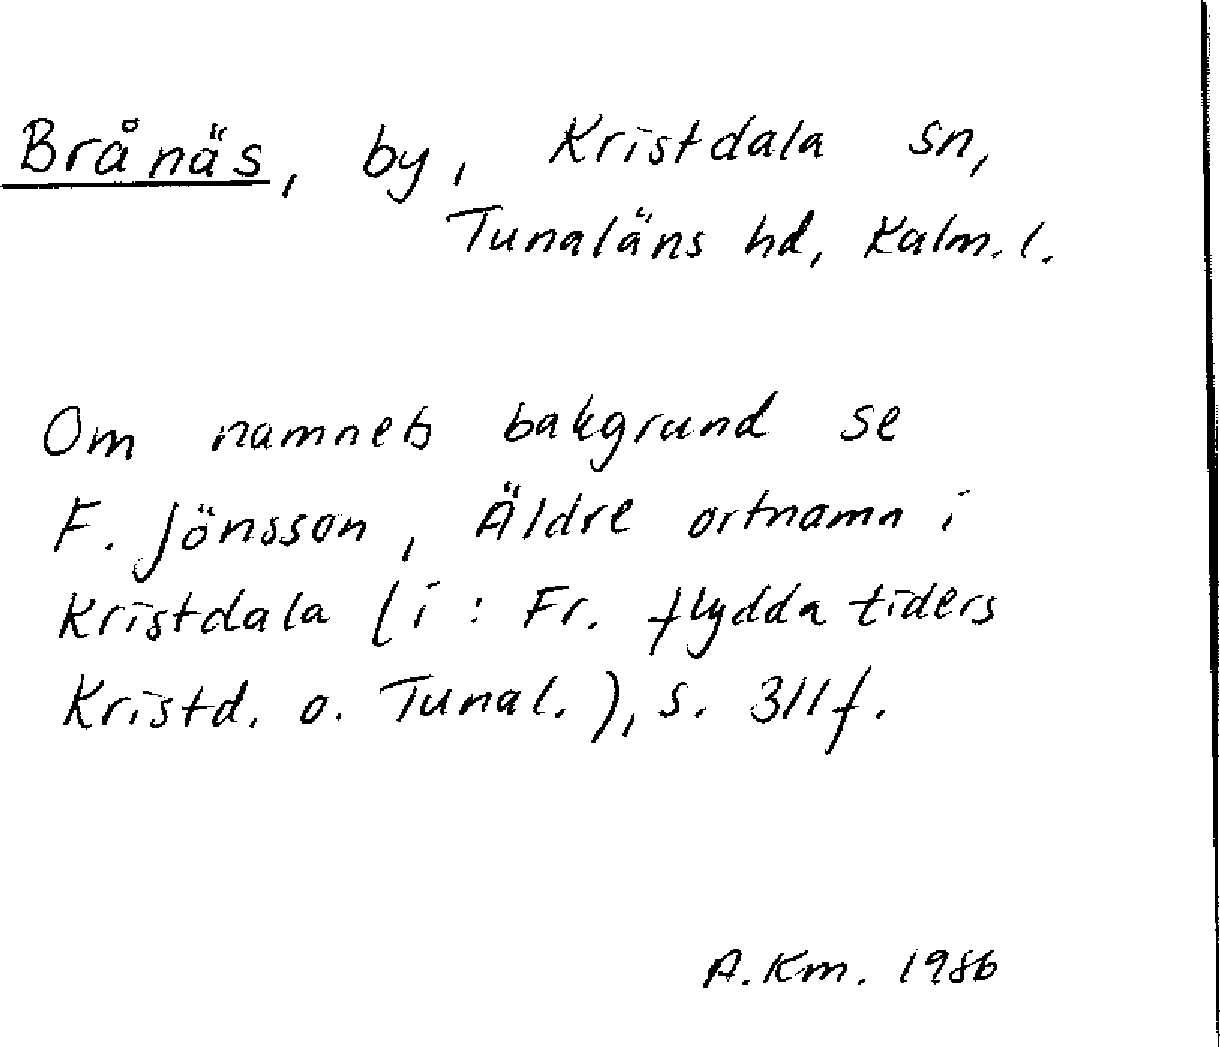 Brånäs, by, Kristdala sn,
Tunaläns hd, Kalm. l.
Om namnets bakgrund se
F. Jönsson, Äldre ortnamn i
Kristdala (i: Fr. flydda tiders
Kristd. o. Tunal.), s. 311f.
A. Km. 1986